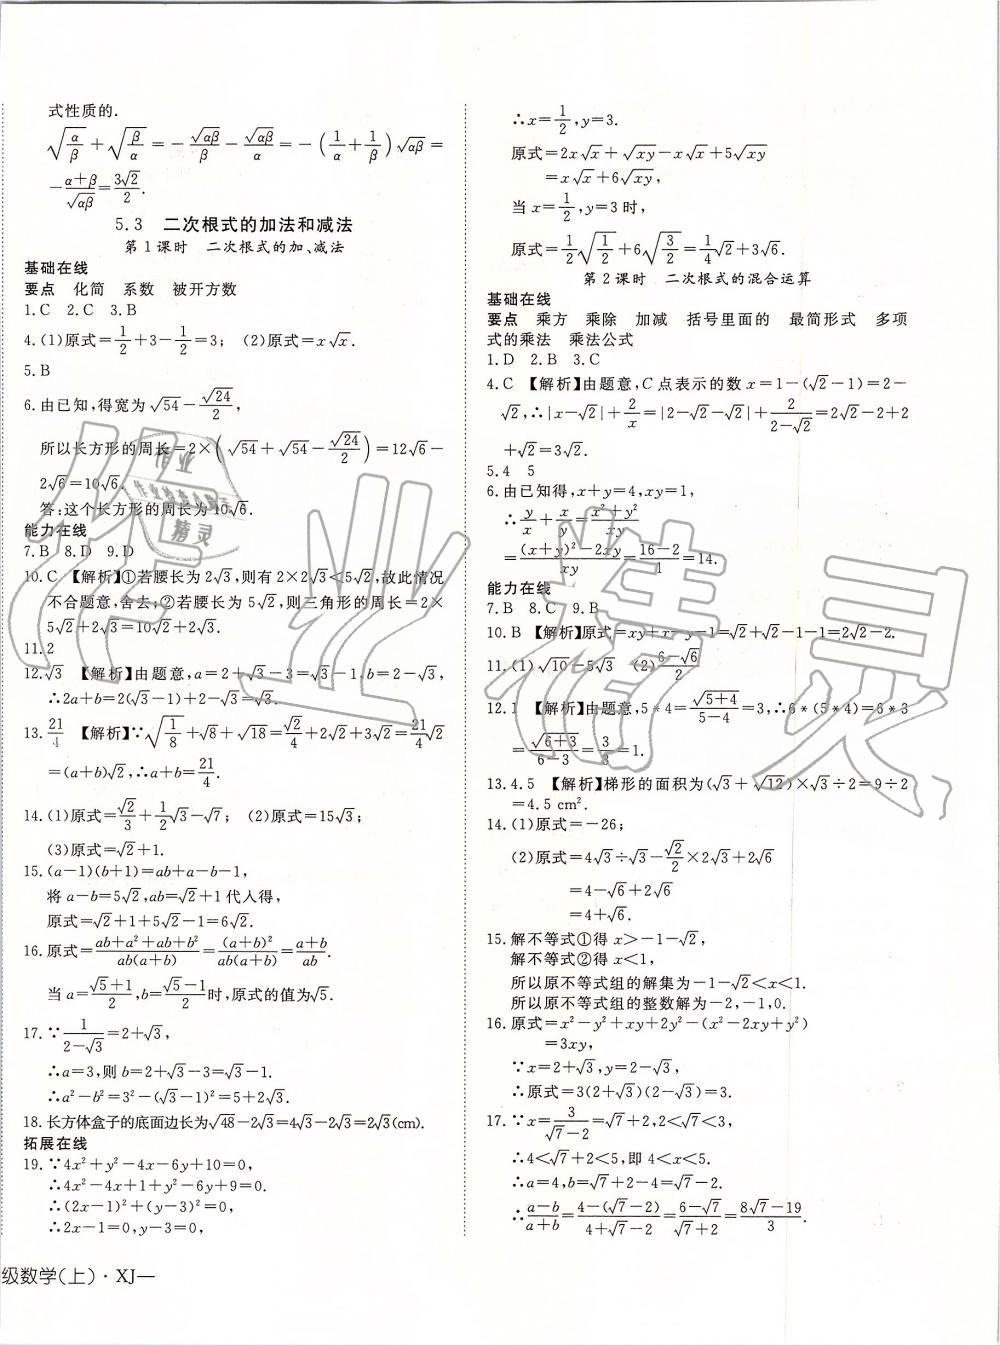 式性质的.
√(α/β)+√(β/α)=-√(αβ)/β-√(αβ)/α=-(1/α+1/β)√(αβ)=
-(α+β)/√(αβ)=3√2/2.
5.3 二次根式的加法和减法
第1课时 二次根式的加、减法
基础在线
要点 化简 系数 被开方数
1.C 2.C 3.B
4.(1)原式=1/2+3-1/2=3; (2)原式=x√x.
5.B
6.由已知,得宽为√54-√24/2,
所以长方形的周长=2×(√54+√54-√24/2)=12√6-
2√6=10√6.
答:这个长方形的周长为10√6.
能力在线
7.B 8.D 9.D
10.C 【解析】①若腰长为2√3,则有2×2√3<5√2,故此情况
不合题意,舍去;②若腰长为5√2,则三角形的周长=2×
5√2+2√3=10√2+2√3.
11.2
12.√3 【解析】由题意,a=2+√3-3=√3-1,b=2-√3,
∴2a+b=2(√3-1)+2-√3=√3.
13.21/4 【解析】∵√(1/8)+√8+√18=√2/4+2√2+3√2=21/4√2
=(a+b)√2,∴a+b=21/4.
14.(1)原式=√2/3+1/2√3-√7; (2)原式=15√3;
(3)原式=√2+1.
15.(a-1)(b+1)=ab+a-b-1,
将a-b=5√2,ab=√2+1代人得,
原式=√2+1+5√2-1=6√2.
16.原式=(ab+a²+ab+b²)/(ab(a+b))=(a+b)²/(ab(a+b))=(a+b)/ab.
当a=(√5+1)/2,b=(√5-1)/2时,原式的值为√5.
17.∵1/(2-√3)=2+√3,
∴a=3,则b=2+√3-3=√3-1.
∴a²-b²=3²-(√3-1)²=5+2√3.
18.长方体盒子的底面边长为√48-2√3=4√3-2√3=2√3(cm).
拓展在线
19.∵4x²+y²-4x-6y+10=0,
∴4x²-4x+1+y²-6y+9=0.
∴(2x-1)²+(y-3)²=0,
∴2x-1=0,y-3=0.
级数学(上)·XJ—
∴x=1/2,y=3.
原式=2x√x+√(xy)-x√x+5√(xy)
=x√x+6√(xy),
当x=1/2,y=3时,
原式=1/2√(1/2)+6√(3/2)=1/4√2+3√6.
第2课时 二次根式的混合运算
基础在线
要点 乘方 乘除 加减 括号里面的 最简形式 多项
式的乘法 乘法公式
1.D 2.B 3.C
4.C 【解析】由题意,C点表示的数x=1-(√2-1)=2-
√2,∴|x-√2|+2/x=|2-√2-√2|+2/(2-√2)=2√2-2+2
+√2=3√2.
5.4 5
6.由已知得,x+y=4,xy=1,
∴y/x+x/y=(x²+y²)/xy
=((x+y)²-2xy)/xy=(16-2)/1=14.
能力在线
7.B 8.C 9.B
10.B 【解析】原式=xy+x-y-1=√2+√2-1-1=2√2-2.
11.(1)√10-5√3 (2)(6-√6)/2
12.1 【解析】由题意,5*4=√(5+4)/(5-4)=3,∴6*(5*4)=6*3
=√(6+3)/(6-3)=3/3=1.
13.4.5 【解析】梯形的面积为(√3+√12)×√3÷2=9÷2
=4.5 cm².
14.(1)原式=-26;
(2)原式=4√3÷√3-√2/2×2√3+2√6
=4-√6+2√6
=4+√6.
15.解不等式①得x>-1-√2,
解不等式②得x<1,
所以原不等式组的解集为-1-√2<x<1.
所以原不等式组的整数解为-2,-1,0.
16.原式=x²-y²+xy+2y²-(x²-2xy+y²)
=3xy,
∵x=2+√3,y=2-√3,
∴原式=3(2+√3)(2-√3)=3.
17.∵x=3/(√7-2)=√7+2,2<√7<3,
∴4<√7+2<5,即4<x<5.
∴a=4,b=√7+2-4=√7-2.
∴(a-b)/(a+b)=(4-(√7-2))/(4+√7-2)=(6-√7)/(√7+2)=(8√7-19)/3.
作业精灵